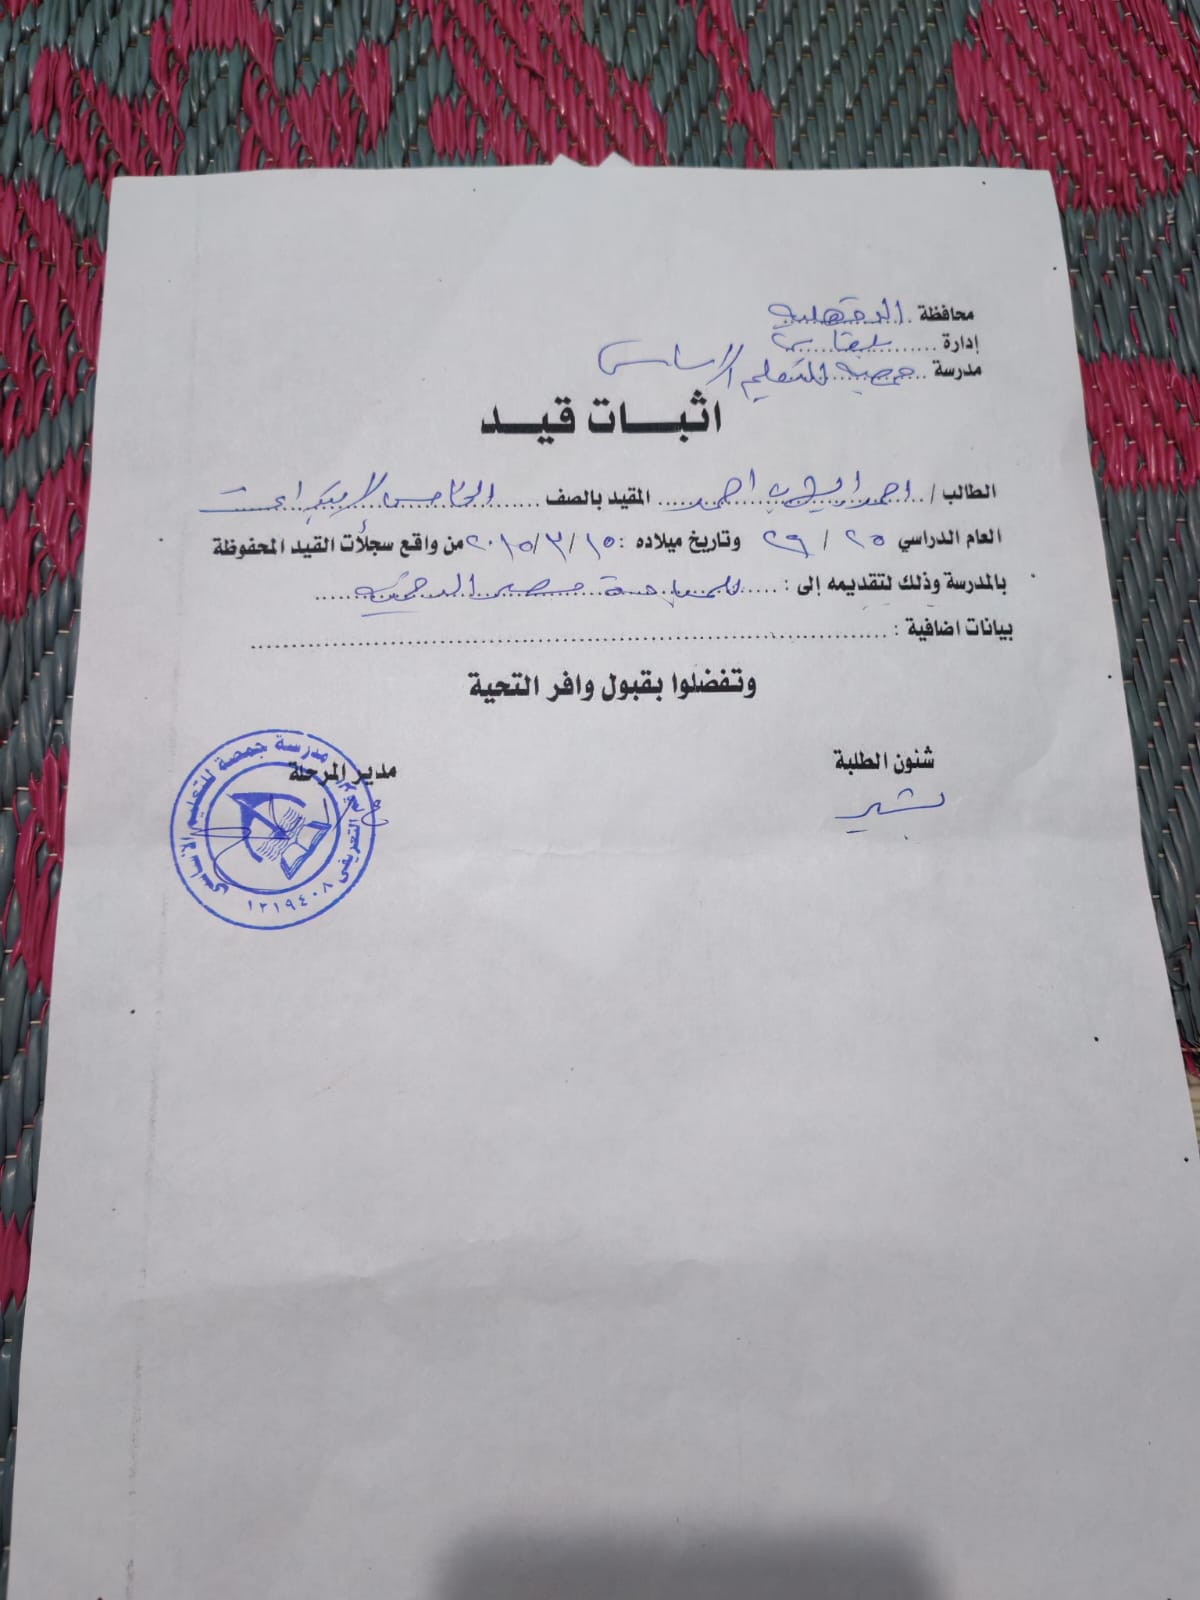 محافظة الدقهلية
إدارة بلقاس
مدرسة جمصه للتعليم الأساسى
اثبات قيد
الطالب / احمد احمد المقيد بالصف الخامس الابتدائى
العام الدراسي ٢٥ / ٢٩ وتاريخ ميلاده : ٢٠١٥/٣/١٥ من واقع سجلات القيد المحفوظة
بالمدرسة وذلك لتقديمه إلى :
بيانات اضافية :
وتفضلوا بقبول وافر التحية
شئون الطلبة
مدير المرحلة
بشير
مدرسة جمصة للتعليم الاساسى
التعريفى ١٢١٩٤٠٨